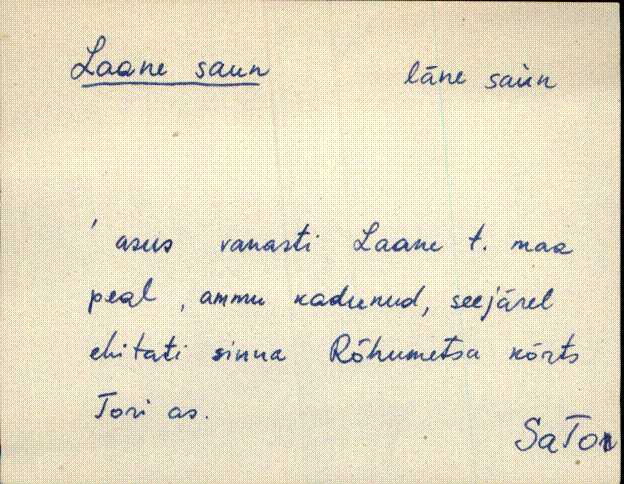 Laane saun lāne saùn
' asus vanasti Laane t. maa
peal, ammu kadunud, seejärel
ehitati sinna Rõhumetsa kõrts
Tori as.
SaTor